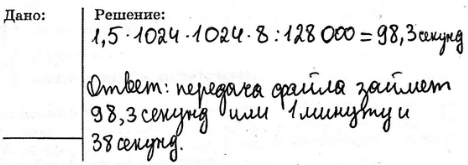 Дано:
Решение:
1,5·1024·1024·8:128 000=98,3секунд
Ответ: передача файла займет
98,3секунд или 1минуту и
38секунд.